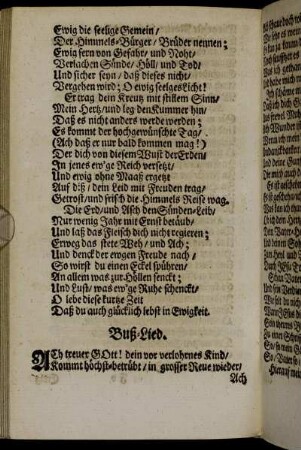 Ewig die seelige Gemein/
Der Himmels-Bürger/ Brüder nennen;
Ewig fern von Gefahr/ und Noht/
Verlachen Sünde/ Höll/ und Tod/
Und sicher seyn/ daß dieses nicht/
Vergehen wird; O ewig seeliges Licht!
Ertrag dein Kreutz mit stillem Sinn/
Mein Hertz/ und leg den Kummer hin/
Daß es nicht anders werde werden;
Es kommt der hochgewünschte Tag/
(Ach daß er nur bald kommen mag!)
Der dich von diesem Wust der Erden/
In jenes ew'ge Reich versetzt/
Und ewig ohne Maaß ergetzt
Auf diß/ dein Leid mit Freuden trag/
Getrost/ und frisch die Himmels Reise wag.
Die Erd/ und Asch den Sünden-Leib/
Nur wenig Jahr mit Ernst betäub/
Und laß das Fleisch dich nicht regieren;
Erweg das stete Weh/ und Ach;
Und denck der ewgen Freude nach/
So wirst du einen Eckel spühren/
An allem was zur Höllen senckt;
Und Lust/ was ew'ge Ruhe schenckt/
O lebe diese kurtze Zeit
Daß du auch glücklich lebst in Ewigkeit.
Buß-Lied.
ACh treuer GOtt! dein vor verlohrnes Kind/
Kommt höchst-betrübt/ in grosser Reue wieder/
Ach